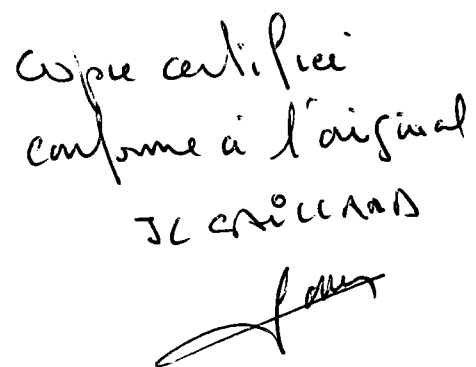 Copie certifiée
conforme à l'original
JL GAILLARD